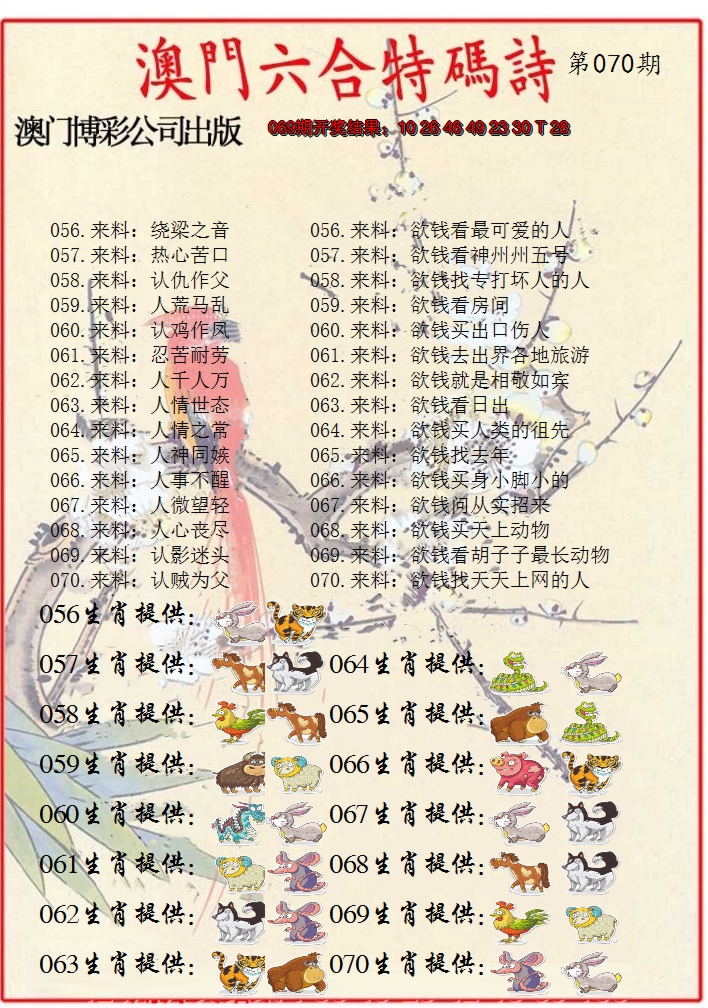 澳門六合特碼詩 第070期
澳门博彩公司出版 069期开奖结果：10 26 46 49 23 30 T 28
056.来料：绕梁之音 056.来料：欲钱看最可爱的人
057.来料：热心苦口 057.来料：欲钱看神州州五号
058.来料：认仇作父 058.来料：欲钱找专打坏人的人
059.来料：人荒马乱 059.来料：欲钱看房间
060.来料：认鸡作凤 060.来料：欲钱买出口伤人
061.来料：忍苦耐劳 061.来料：欲钱去出界各地旅游
062.来料：人千人万 062.来料：欲钱就是相敬如宾
063.来料：人情世态 063.来料：欲钱看日出
064.来料：人情之常 064.来料：欲钱买人类的祖先
065.来料：人神同嫉 065.来料：欲钱找去年
066.来料：人事不醒 066.来料：欲钱买身小脚小的
067.来料：人微望轻 067.来料：欲钱问从实招来
068.来料：人心丧尽 068.来料：欲钱买天上动物
069.来料：认影迷头 069.来料：欲钱看胡子子最长动物
070.来料：认贼为父 070.来料：欲钱找天天上网的人
056生肖提供：
057生肖提供： 064生肖提供：
058生肖提供： 065生肖提供：
059生肖提供： 066生肖提供：
060生肖提供： 067生肖提供：
061生肖提供： 068生肖提供：
062生肖提供： 069生肖提供：
063生肖提供： 070生肖提供：